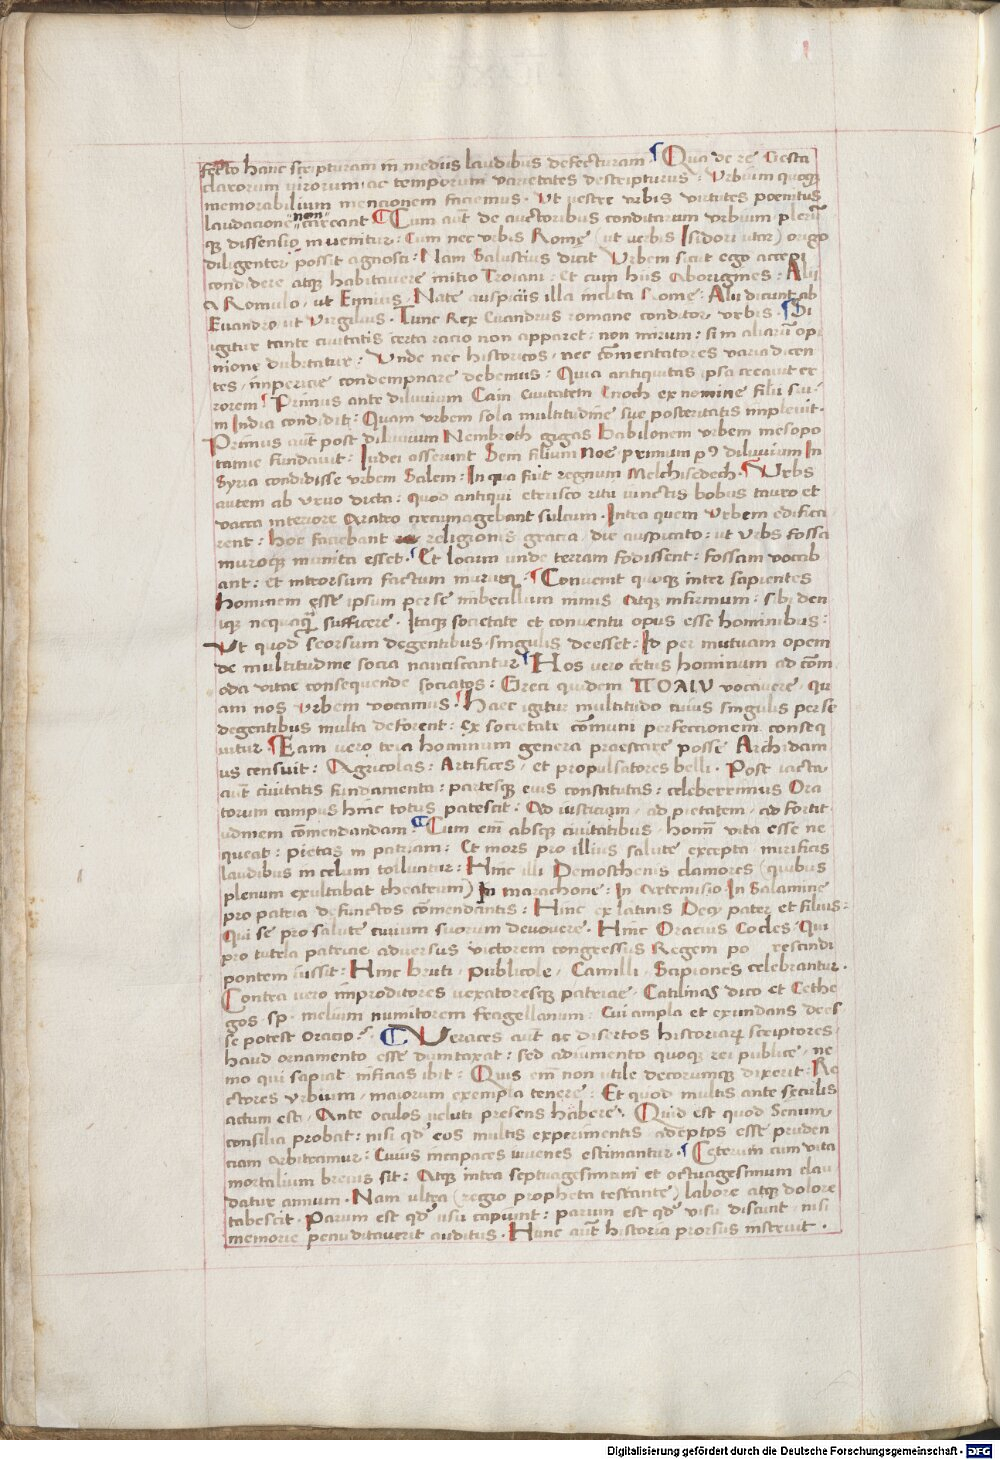 fecto hanc scripturam in mediis laudibus defecturam. Qua de re Gesta
clarorum virorum: ac temporum varietates descripturus: Urbium quoque
memorabilium mencionem faciemus. Ut vestre urbis virtutes poenitus
laudacione non careant. Cum aūt de auctoribus conditarum urbium plerū
qȝ dissensio inveniatur: Cum nec urbis Rome (ut verbis Isidori utar) origo
diligenter possit agnosci: Nam Salustius dicit Urbem sicut ego accepi
condidere atqȝ habitavere initio Troiani: Et cum hiis Aborigines: Alii
a Romulo, ut Ennius, Nate auspiciis illa inclita Rome: Alii dicunt ab
Evandro, ut Virgilius. Tunc Rex Evandrus romane conditor urbis. Si
igitur tante civitatis certa racio non apparet: non mirum: si in aliarū opi
nione dubitatur: Unde nec historicos, nec cōmentatores varia dicen
tes, impericie condempnare debemus: Quia antiquitas ipsa creavit er
rorem. Primus ante diluvium Cain Civitatem Enoch ex nomine filii sui
in India condidit: Quam urbem sola multitudine sue posteritatis implevit.
Primus aūt post diluvium Nembroth gigas Babilonem urbem mesopo
tamie fundavit: Iudei asserunt Sem filium Noe primum pꝰ diluvium In
Syria condidisse urbem Salem: In qua fuit regnum Melchisedech. Urbs
autem ab urvo dicta: quod antiqui etrisco ritu iunctis bobus tauro et
vacca interiore Aratro circumagebant sulcum. Intra quem Urbem edifica
rent: Hoc faciebant religionis gracia, die auspicato: ut Urbs fossa
muroqȝ munita esset. Et locum unde terram fodissent: fossam vocab
ant: et introrsum factum murum. Convenit quoqȝ inter sapientes
Hominem esse ipsum per se imbecillum nimis atqȝ infirmum: sibi den
iqȝ nequaqȝ sufficere. Itaqȝ societate et conventu opus esse hominibus:
Ut quod seorsum degentibus singulis deesset: Id per mutuam opem
de multitudine socia nanciscantur. Hos vero cetus hominum ad cōm
oda vitae consequende sociatos: Greci quidem ΠΟΛΙΝ vocavere, Qu
am nos urbem vocamus. Haec igitur multitudo cuius singulis per se
degentibus multa deforent: ex societate cōmuni perfectionem conseq
uitur. Eam vero tria hominum genera praestare posse Archidam
us censuit: Agricolas: Artifices, et propulsatores belli. Post iacta
aūt civitatis fundamenta: partesqȝ eius constitutas: celeberrimus Ora
torum campus hinc totus patescit. Ad iusticiam, ad pietatem, ad fortit
udinem cōmendandam. Cum em̄ absqȝ civitatibus, homī vita esse ne
queat: pietas in patriam: Et mors pro illius salute excepta mirificis
laudibus in celum tolluntur: Hinc illi Demosthenis clamores (quibus
plenum exultabat theatrum) In marathone: In Artemisio In Salamine
pro patria defunctos cōmendantis: Hinc ex latinis Decii pater et filius:
Qui se pro salute civium suorum devovere. Hinc Oracius Cocles Qui
pro tutela patriae adversus victorem congressus Regem po rescindi
pontem iussit: Hinc Bruti, Publicole, Camilli, Scipiones celebrantur.
Contra vero inproditores vexatoresqȝ patriae, Catilinas dico et Cethe
gos sp. melium numitorem fregellanum: Cui ampla et exundans dees
se potest Oracio? Veraces aūt ac disertos historiarū scriptores,
haud ornamento esse dumtaxat: sed adiumento quoqȝ rei publice, ne
mo qui sapiat inficias ibit: Quis em̄ non utile decorumqȝ dixerit: Re
ctores Urbium, maiorum exempla tenere: Et quod multis ante seculis
actum est, Ante oculos veluti presens habere. Quid est quod Senum
consilia probat: nisi qđ eos multis experimentis adeptos esse pruden
ciam arbitramur: Cuius incapaces iuvenes estimantur. Ceterum cum vita
mortalium brevis sit: Atqȝ intra septuagesimam et octuagesimum clau
datur annum. Nam ultra (regio propheta testante) labore atqȝ dolore
tabescit. Parum est qđ usu capiunt: parum est qđ visu discunt, nisi
memorie penu ditaverit auditus. Hunc aūt historia prorsus instruit.
Digitalisierung gefördert durch die Deutsche Forschungsgemeinschaft - DFG